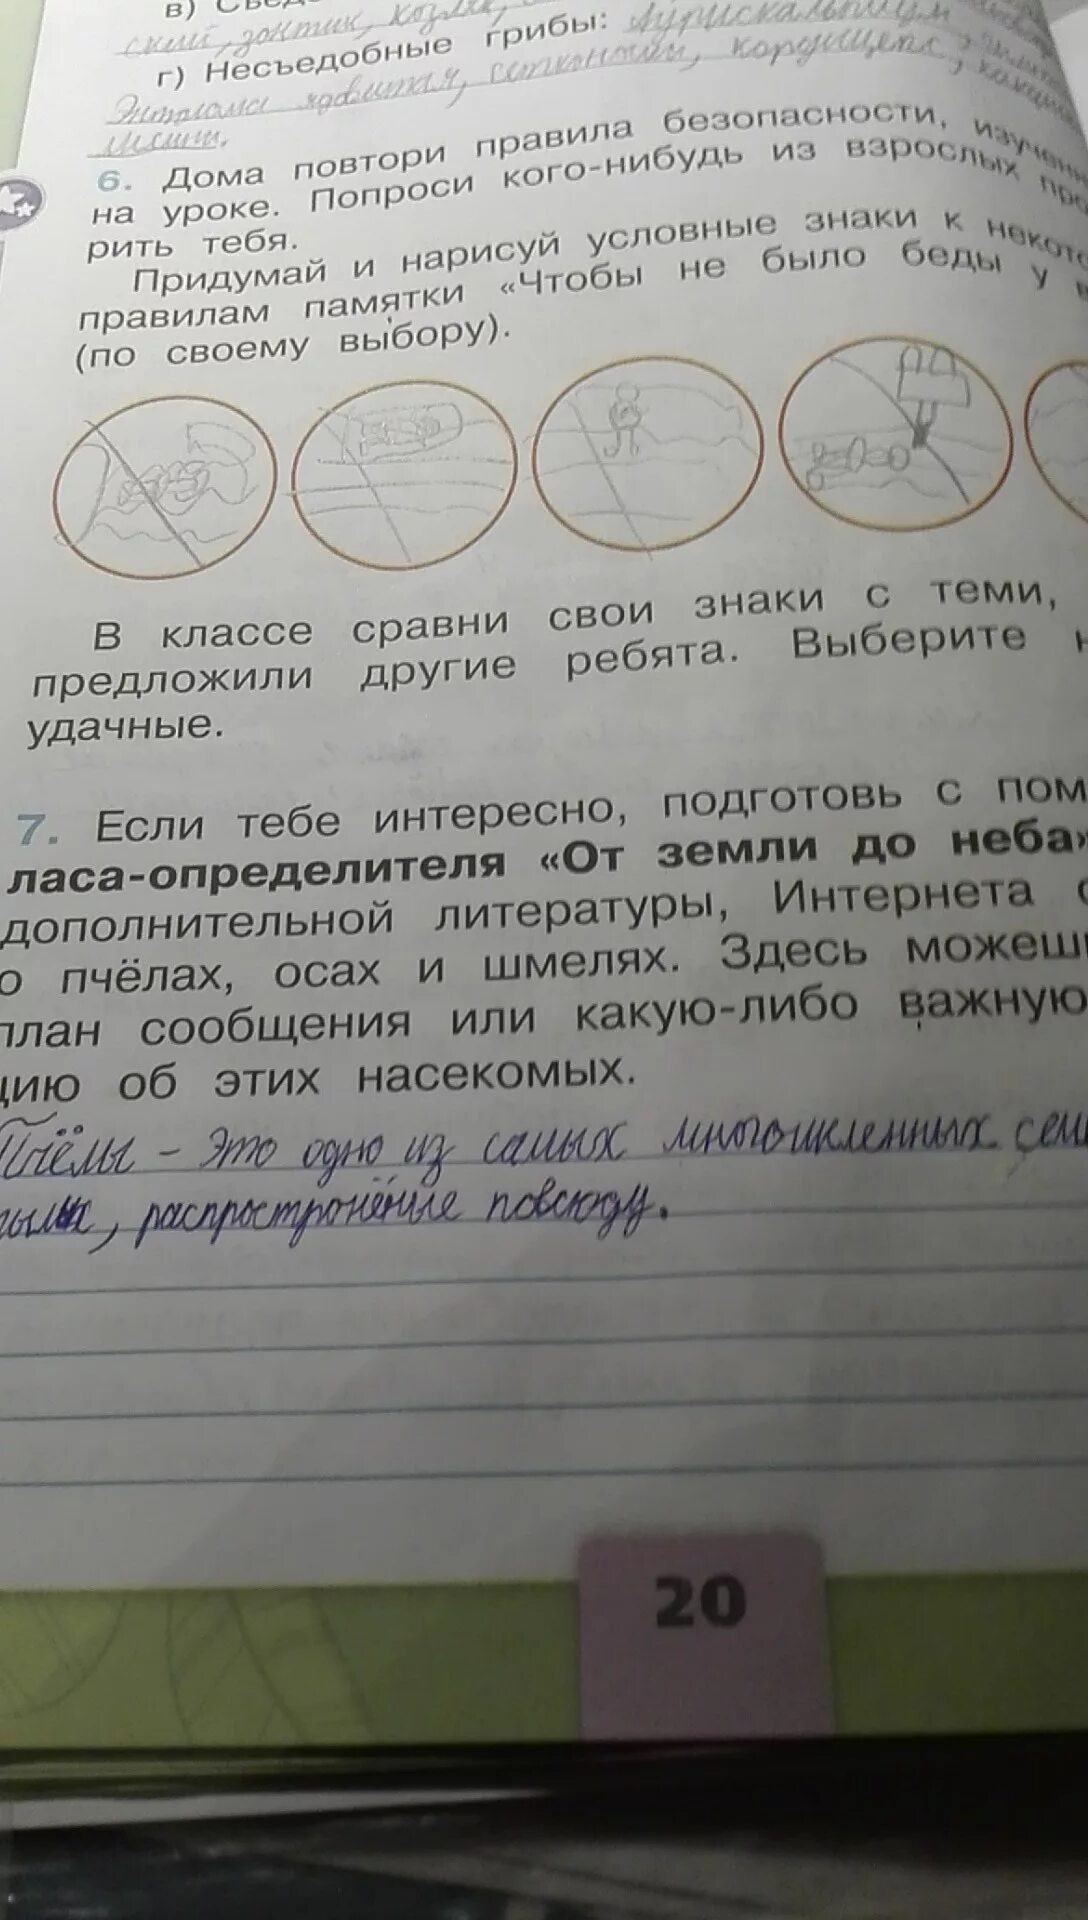 в)
ский, зонтик, козляк,
г) Несъедобные грибы: Аурискальпиум
Энтолома ядовитая,
6. Дома повтори правила безопасности, изучен
на уроке. Попроси кого-нибудь из взрослых про
рить тебя.
Придумай и нарисуй условные знаки к некото
правилам памятки «Чтобы не было беды у в
(по своему выбору).
В классе сравни свои знаки с теми,
предложили другие ребята. Выберите н
удачные.
7. Если тебе интересно, подготовь с пом
ласа-определителя «От земли до неба»
дополнительной литературы, Интернета с
о пчёлах, осах и шмелях. Здесь можешь
план сообщения или какую-либо важную
цию об этих насекомых.
Пчёлы - это одно из самых многочисленных сем
распространение повсюду.
20